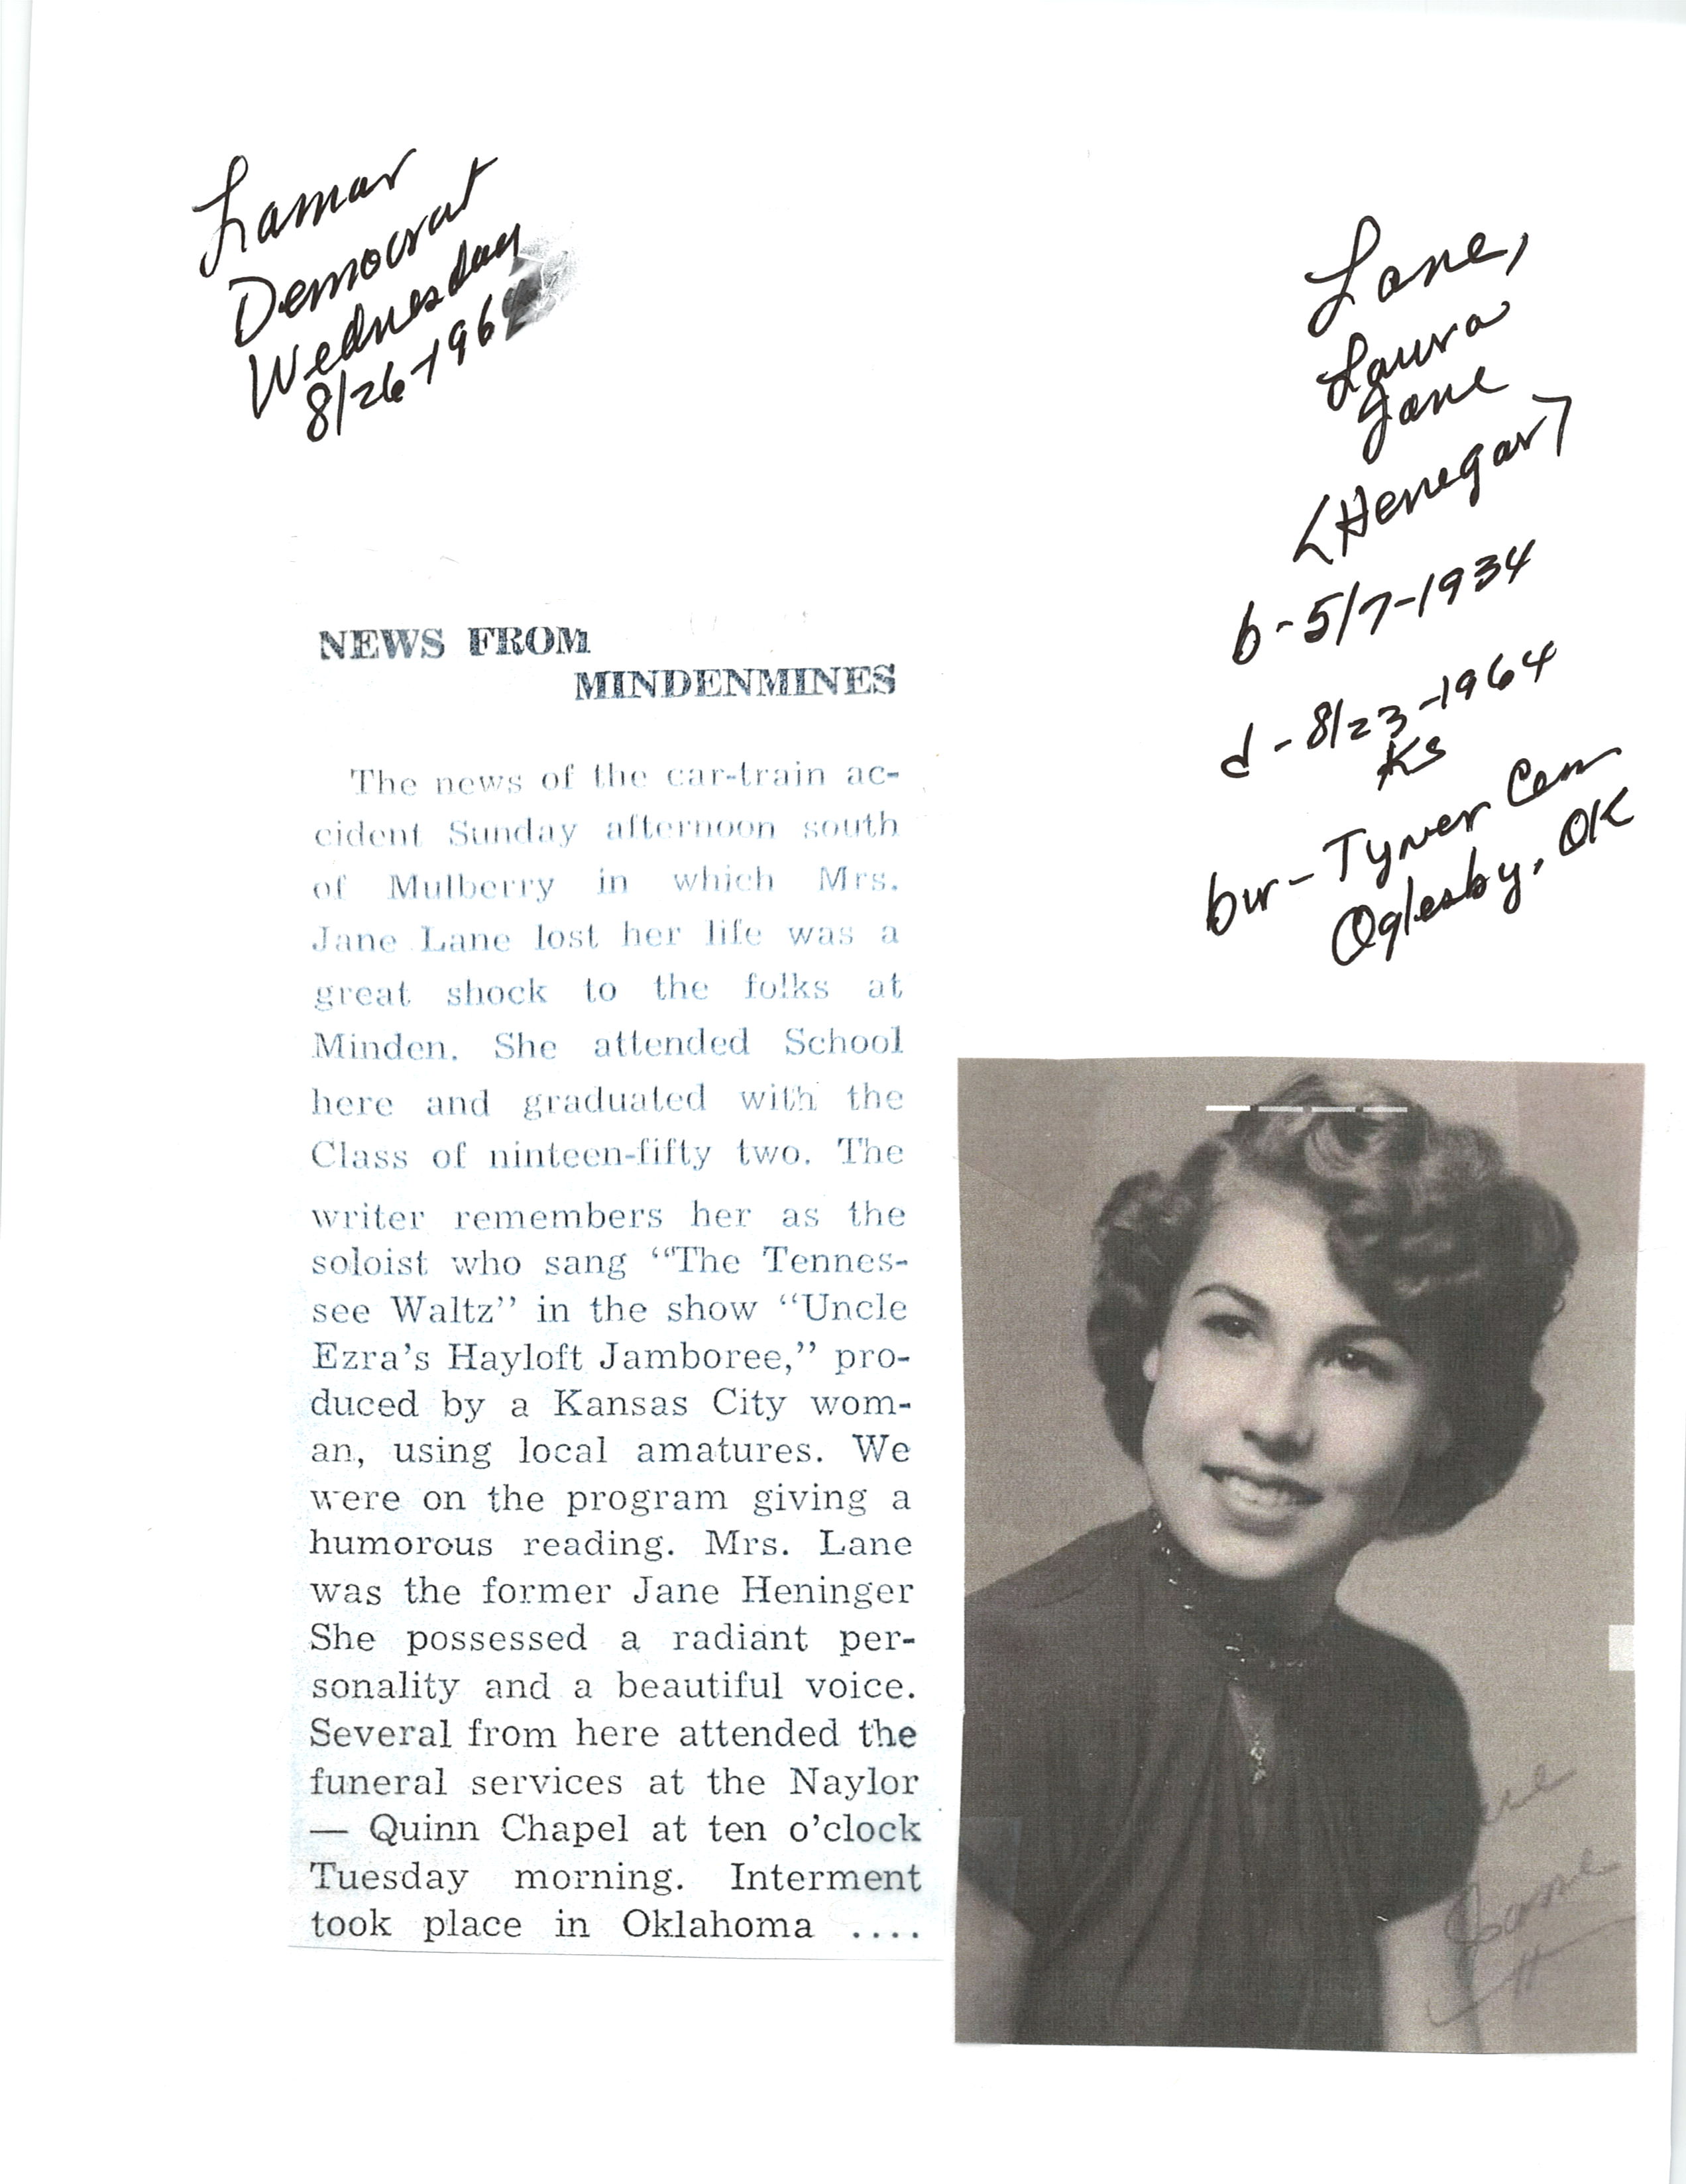 Lamar
Democrat
Wednesday
8/26-196
Lane,
Laura
Jane
<Henegar>
b-5/7-1934
d-8/23-1964
KS
bur-Tyner Cem
Oglesby, OK
NEWS FROM
MINDENMINES
The news of the car-train ac-
cident Sunday afternoon south
of Mulberry in which Mrs.
Jane Lane lost her life was a
great shock to the folks at
Minden. She attended School
here and graduated with the
Class of ninteen-fifty two. The
writer remembers her as the
soloist who sang “The Tennes-
see Waltz” in the show “Uncle
Ezra’s Hayloft Jamboree,” pro-
duced by a Kansas City wom-
an, using local amatures. We
were on the program giving a
humorous reading. Mrs. Lane
was the former Jane Heninger
She possessed a radiant per-
sonality and a beautiful voice.
Several from here attended the
funeral services at the Naylor
— Quinn Chapel at ten o’clock
Tuesday morning. Interment
took place in Oklahoma ....
Jane